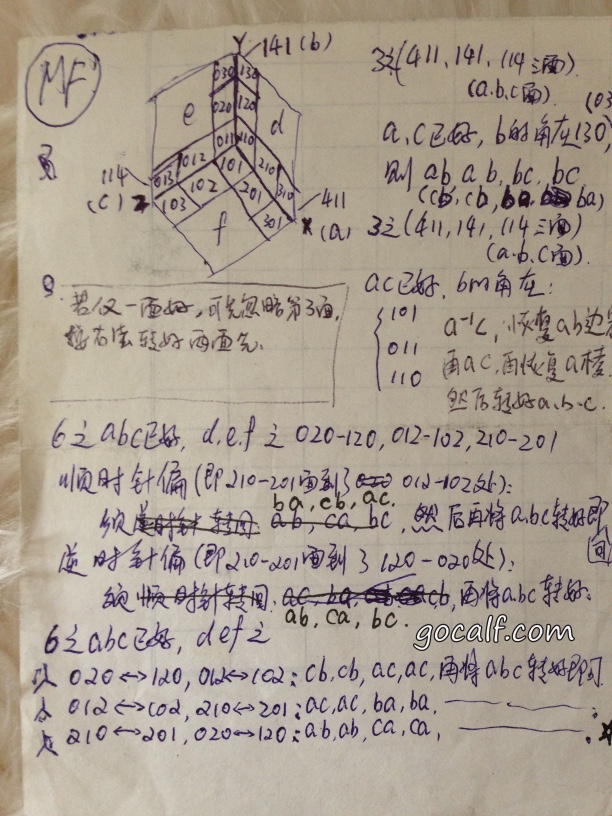 MF
Y 141 (b)
030 130
020 120
e
d
011 110
012 101 210
013
114
(c) Z
103 102 201 310
301
f
411
X (a)
3之(411, 141, 114三面).
(a.b.c面).
(03
a, c已好, b的角在130,
则 ab ab, bc, bc
(cb, cb, ba ba)
3之(411, 141, 114三面).
(a.b.c面).
ac已好, b的角在:
101
011
110
a⁻¹c, 恢复ab边
再ac, 再恢复a棱
然后转好a.b.c.
若仅一面好, 可先忽略第3面,
按右法转好两面先.
6之abc已好, d.e.f之 020-120, 012-102, 210-201
顺时针偏(即210-201面到了 012-102处):
ba, cb, ac.
须逆时针转回: ab ca bc, 然后再将a.b.c转好即
回
逆时针偏(即210-201面到了120-020处):
须顺时针转回: 再将a.b.c转好.
ab, ca, bc.
gocalf.com
6之abc已好, def之
020↔120, 012↔102: cb, cb, ac, ac, 再将abc转好即可.
012↔102, 210↔201: ac, ac, ba, ba,
210↔201, 020↔120: ab, ab, ca, ca,